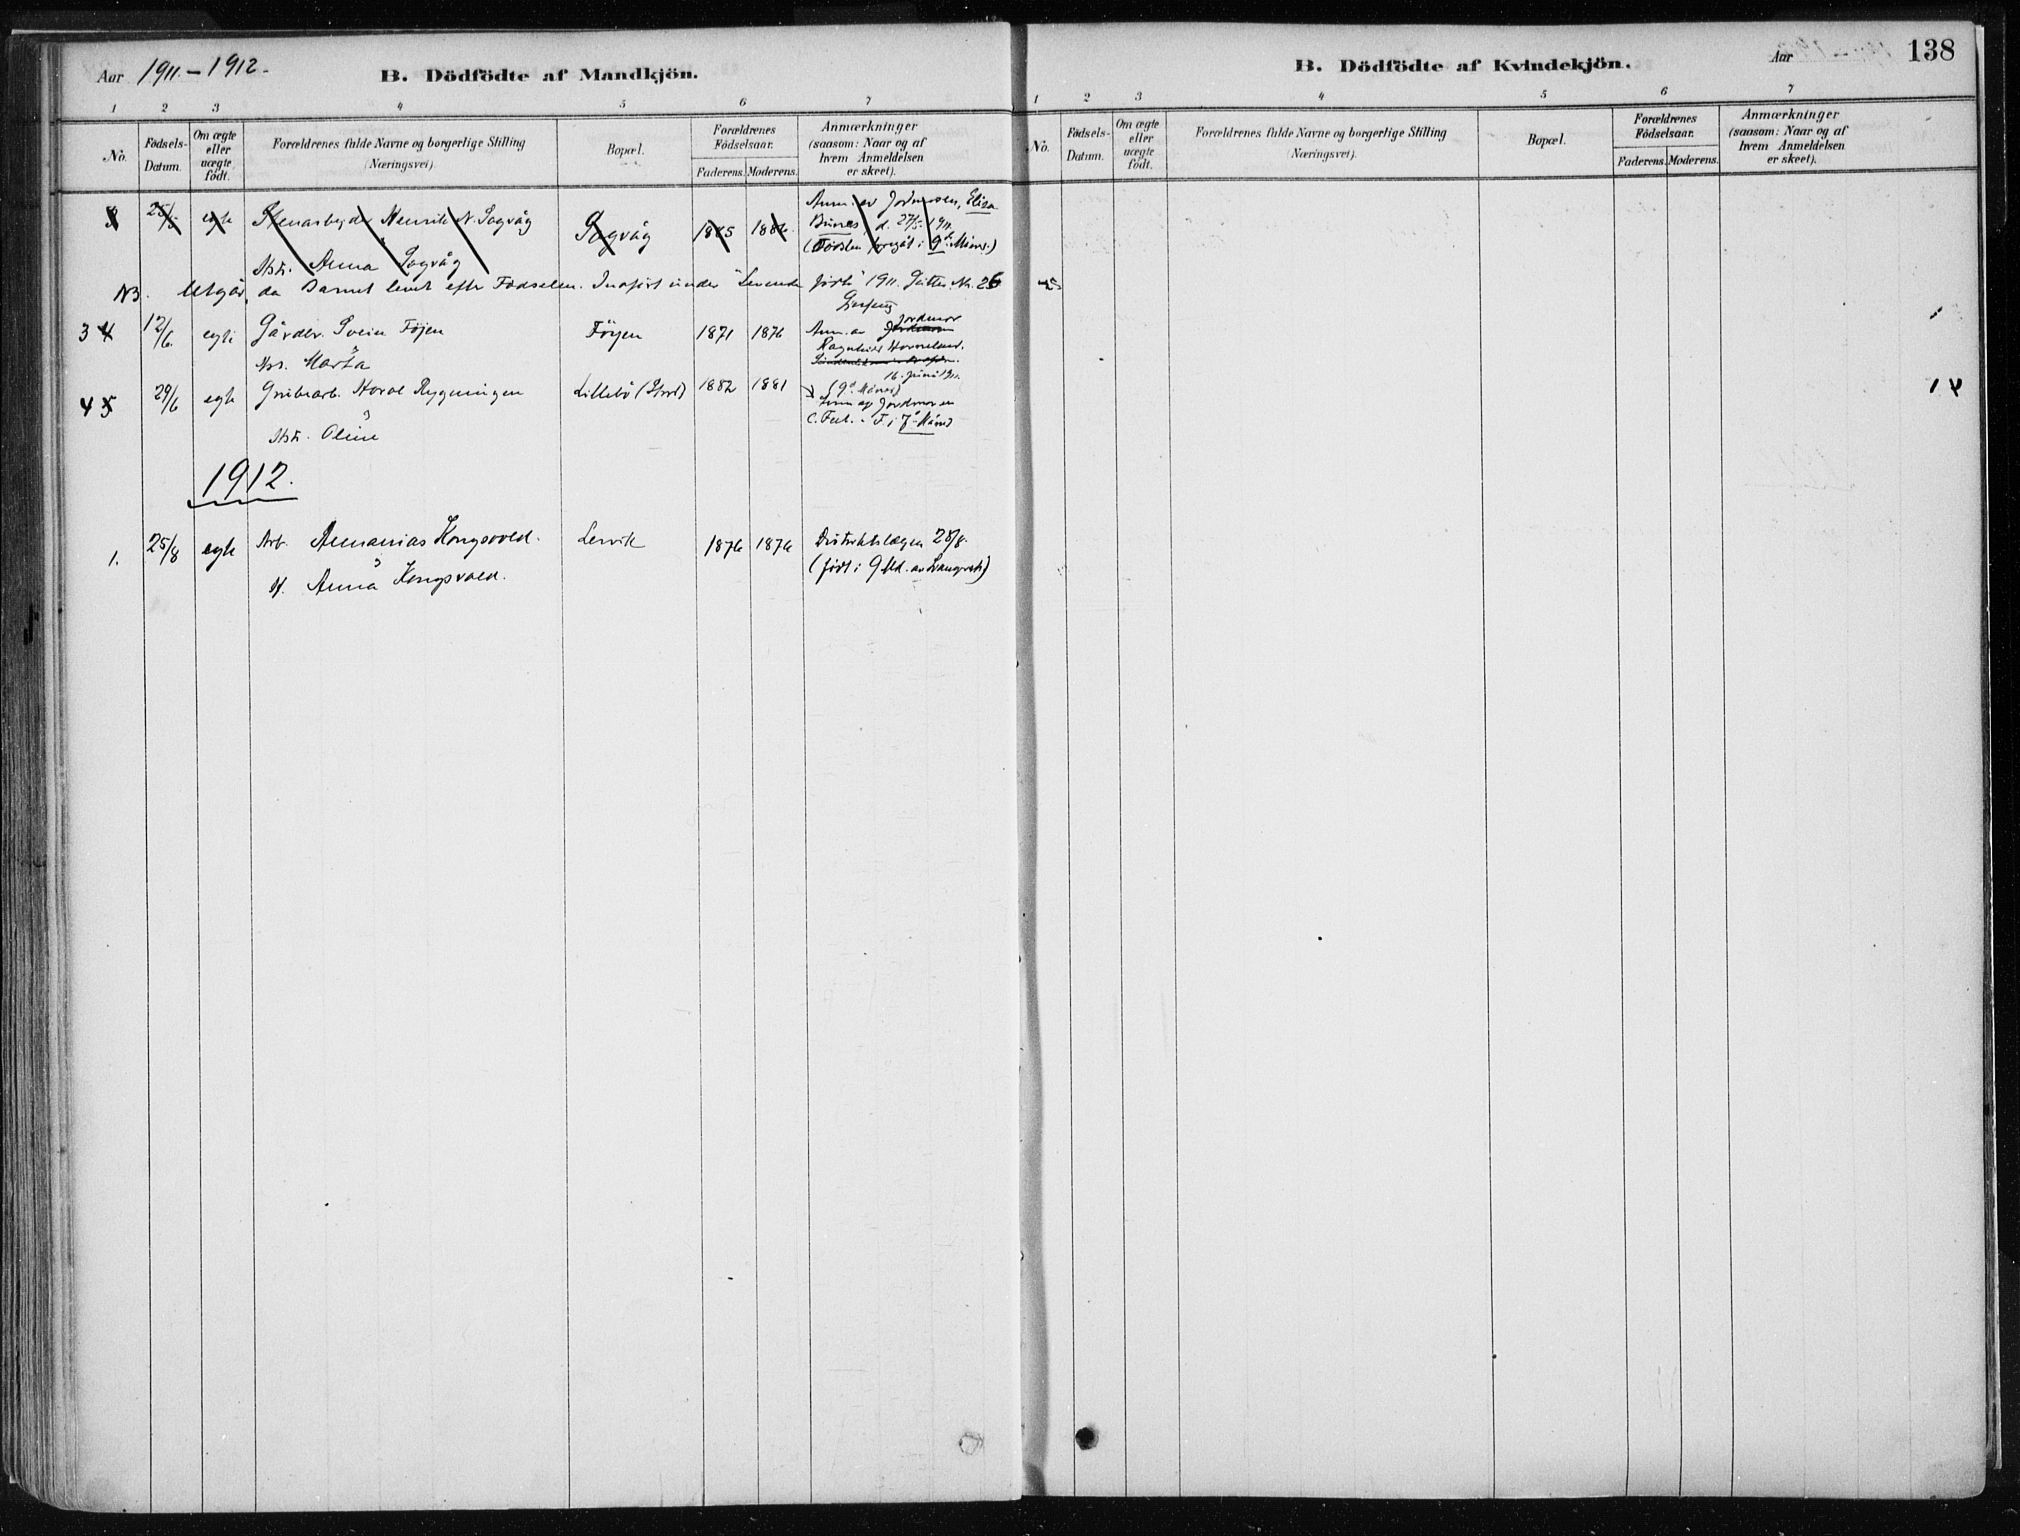 Aar 1911.-1912.
B. Dödfödte af Mandkjön.
1 2 3 4 5 6 7
No. Födsels-Datum. Om ægte eller uægte födt. Forældrenes fulde Navne og borgerlige Stilling (Næringsvei) Bopæl. Forældrenes Födselsaar. Faderens. Moderens. Anmærkninger (saasom: Naar og af hvem Anmeldelsen er skeet).
3 25/5 egte Stenarbejd. Henrik N. Sagvåg Sagvåg 1885 1886 Anm. av Jordmoren, Elisa
d. 27/5 1911.
Hstr. Anna Sagvåg
(Födslen foregåt i 9d Måned.)
NB. Utgår, da Barnet levet efter Fødselen. Indført under "Levende fødte" 1911. Gutter. Nr. 26
3 4 12/6. egte Gårdbr. Svein Føjen Føyen 1871 1876 Anm. av Jordmor
Ragnhild Horneland.
Hstr. Marta
16. Juni 1911.
(9d Måned)
4 5 29/6 egte Grubearb. Rygningen Lillebö (Stord) 1882 1881 Anm. af Jordmoren
Hstr. Oline
1912.
1. 25/8 egte Arb. Ananias Kongsvold. Lervik 1876 1876 Distriktslægen 28/8.
H. Anna Kongsvold.
(født i 9 Md. av Svangersk.)
B. Dödfödte af Kvindekjön.
Aar
138
1 2 3 4 5 6 7
No. Födsels-Datum. Om ægte eller uægte födt. Forældrenes fulde Navne og borgerlige Stilling (Næringsvei). Bopæl. Forældrenes Födselsaar. Faderens. Moderens. Anmærkninger (saasom: Naar og af hvem Anmeldelsen er skeet).